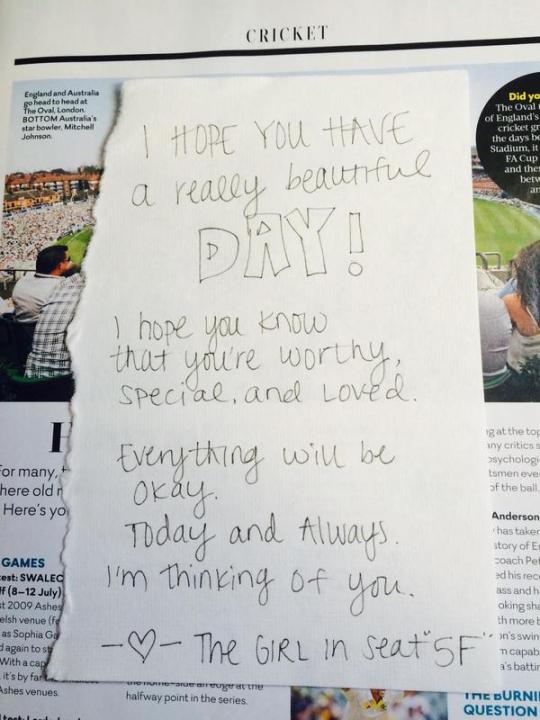 CRICKET
England and Australia
go head to head at
The Oval, London.
BOTTOM Australia's
star bowler, Mitchell
Johnson.
I HOPE YOU HAVE
a really beautiful
DAY!
I hope you know
that you're worthy,
special, and Loved.
Everything will be
okay.
Today and Always.
I'm thinking of you.
-♡- THE GIRL in seat "5F"
Did yo
The Oval
of England's
cricket gr
the days be
Stadium, it
FA Cup
and the
betw
an
H
For many,
here old r
Here's yo
GAMES
est: SWALEC
ff (8–12 July)
st 2009 Ashes
elsh venue (fo
as Sophia Ga
d again to st
With a cap
it's by far
Ashes venues.
halfway point in the series.
g at the top
any critics s
psychologi
tsmen eve
of the ball.
Anderson
has taken
story of E
coach Pet
ed his rec
ass and h
oking sha
th more b
on's swin
m capab
a's battin
THE BURNIN
QUESTION